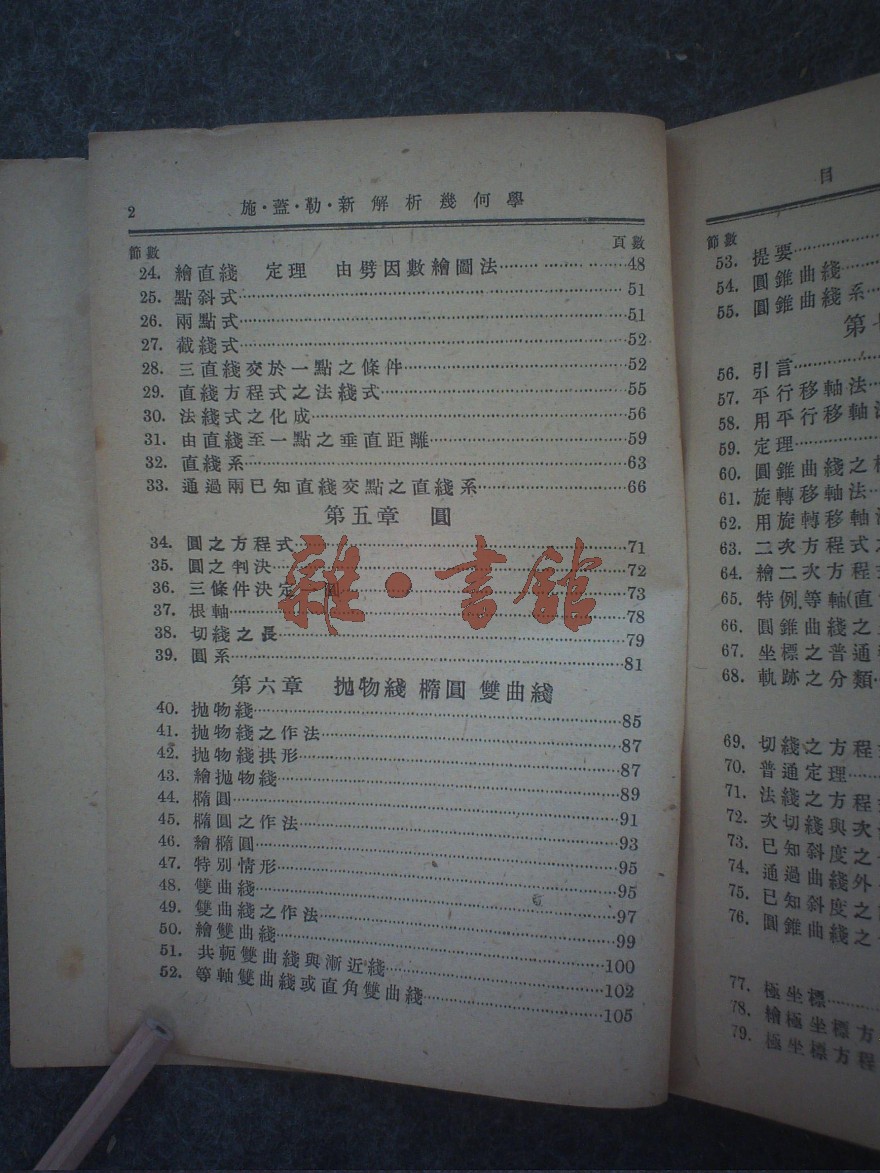 2 施·蓋·勒·新解析幾何學
節數 頁數
24. 繪直綫 定理 由劈因數繪圖法 48
25. 點斜式 51
26. 兩點式 51
27. 截綫式 52
28. 三直綫交於一點之條件 52
29. 直綫方程式之法綫式 55
30. 法綫式之化成 56
31. 由直綫至一點之垂直距離 59
32. 直綫系 63
33. 通過兩已知直綫交點之直綫系 66
第五章 圓
34. 圓之方程式 71
35. 圓之判決 72
36. 三條件決定 圓 73
37. 根軸 78
38. 切綫之長 79
39. 圓系 81
雜·書館
第六章 拋物綫 橢圓 雙曲綫
40. 拋物綫 85
41. 拋物綫之作法 87
42. 拋物綫拱形 87
43. 繪拋物綫 89
44. 橢圓 91
45. 橢圓之作法 93
46. 繪橢圓 95
47. 特別情形 95
48. 雙曲綫 97
49. 雙曲綫之作法 99
50. 繪雙曲綫 100
51. 共軛雙曲綫與漸近綫 102
52. 等軸雙曲綫或直角雙曲綫 105
目
節數
53. 提要
54. 圓錐曲綫
55. 圓錐曲綫系
第
56. 引言
57. 平行移軸法
58. 用平行移軸法
59. 定理
60. 圓錐曲綫之
61. 旋轉移軸法
62. 用旋轉移軸法
63. 二次方程式之
64. 繪二次方程式
65. 特例,等軸(直
66. 圓錐曲綫之
67. 坐標之普通
68. 軌跡之分類
69. 切綫之方程
70. 普通定理
71. 法綫之方程
72. 次切綫與次
73. 已知斜度之
74. 通過曲綫外
75. 已知斜度之
76. 圓錐曲綫之
77. 極坐標
78. 繪極坐標方
79. 極坐標方程